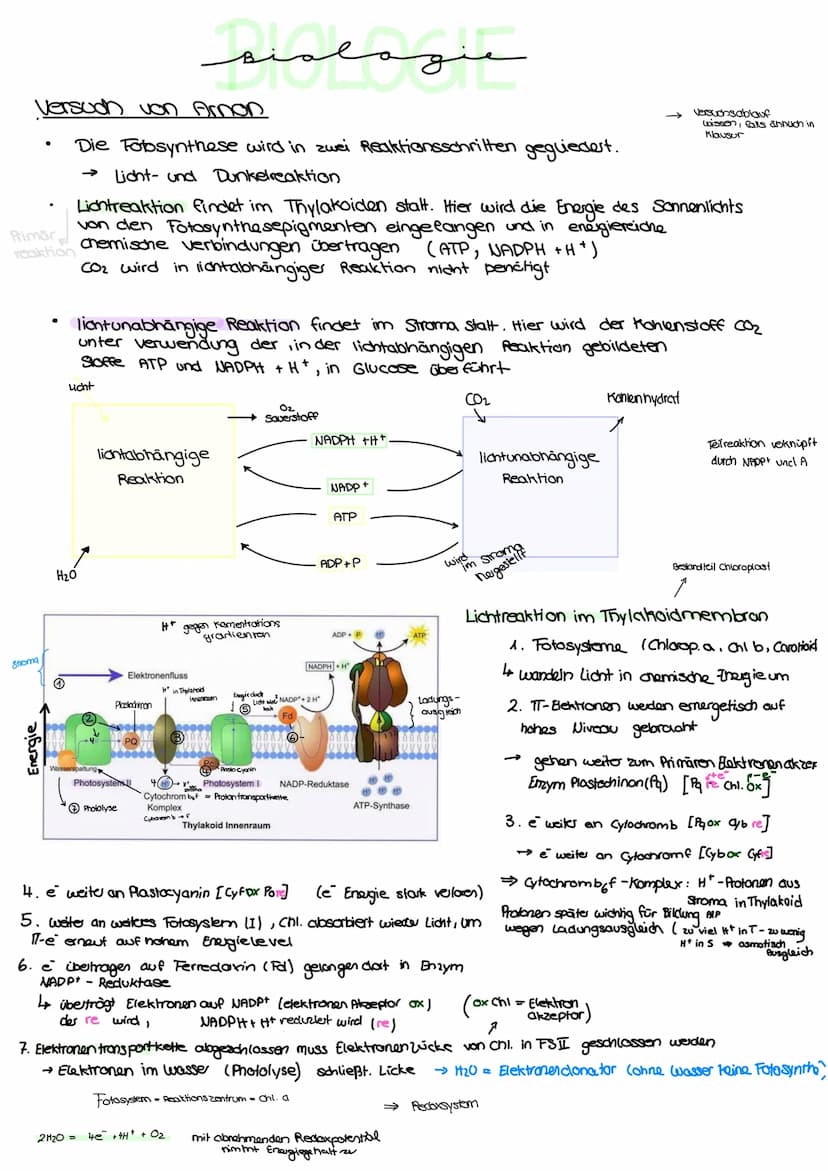 BIOLOGIE
Biologie
Versuch von Arnon
→ Versuchsablauf
wissen, falls ähnlich in
Klausur
• Die Fotosynthese wird in zwei Reaktionsschritten gegliedert.
→ Licht- und Dunkelreaktion
• Lichtreaktion findet im Thylakoiden statt. Hier wird die Energie des Sonnenlichts
von den Fotosynthesepigmenten eingefangen und in energiereiche
Primär
reaktion
chemische Verbindungen übertragen (ATP, NADPH + H⁺)
CO₂ wird in lichtabhängiger Reaktion nicht benötigt
• lichtunabhängige Reaktion findet im Stroma statt. Hier wird der Kohlenstoff CO₂
unter Verwendung der, in der lichtabhängigen Reaktion gebildeten
Stoffe ATP und NADPH + H⁺, in Glucose überführt
Licht
O₂
Sauerstoff
CO₂
Kohlenhydrat
lichtabhängige
Reaktion
NADPH + H⁺
NADP⁺
ATP
ADP+P
lichtunabhängige
Reaktion
Teilreaktion verknüpft
durch NADP⁺ und A
H₂O
wird
im Stroma
hergestellt
Bestandteil Chloroplast
Lichtreaktion im Thylakoidmembran
H⁺ gegen Konzentrations
gradienten
ADP + P
H⁺
ATP
NADPH + H⁺
Stroma
①
Elektronenfluss
H⁺ in Thylakoid
Innenraum
Plastochinon
⑤
NADP⁺ + 2 H⁺
Ladungs-
ausgleich
Energie
②
4e⁻
PQ
③
Fd
⑥
Pc
④
Plastocyanin
Wasserspaltung
Photosystem II
4 H⁺
Photosystem I
NADP-Reduktase
H⁺
⑦ Photolyse
Cytochrom b₆f = Protontransportkette
Komplex
ATP-Synthase
Thylakoid Innenraum
1. Fotosysteme (Chlorop. a, Chl b, Carotioid
↳ wandeln Licht in chemische Energie um
2. π-Elektronen werden energetisch auf
hohes Niveau gebracht
→ gehen weiter zum Primären Elektronenakzep
Enzym Plastochinon (Pq) [Pq re Chl. ox]
3. e⁻ weiter an Cytochromb [Pq ox Cyb re]
→ e⁻ weiter an Cytochromf [Cyb ox Cyf re]
⇒ Cytochromb₆f-Komplex: H⁺-Protonen aus
Stroma in Thylakoid
Protonen später wichtig für Bildung ATP
wegen Ladungsausgleich (zu viel H⁺ in T - zu wenig
H⁺ in S ⇒ osmotisch
Ausgleich
4. e⁻ weiter an Plastocyanin [Cyf ox Pc re] (e⁻ Energie stark verloren)
5. weiter an weiteres Fotosystem (I), Chl. absorbiert wieder Licht, um
π-e⁻ erneut auf hohem Energielevel
6. e⁻ übertragen auf Ferredoxin (Fd) gelangen dort in Enzym
NADP⁺ - Reduktase
↳ überträgt Elektronen auf NADP⁺ (elektronen Akzeptor ox)
des re wird, NADPH + H⁺ reduziert wird (re)
(ox Chl = Elektron
akzeptor)
7. Elektronentransportkette abgeschlossen muss Elektronenlücke von Chl. in FSII geschlossen werden
→ Elektronen im Wasser (Photolyse) schließt. Lücke → H₂O = Elektronendonator (ohne Wasser keine Fotosynthe)
Fotosystem - Reaktionszentrum - Chl. a
⇒ Redoxsystem
2H₂O = 4e⁻ + 4H⁺ + O₂
mit abnehmenden Redoxpotential
nimmt Energiegehalt zu